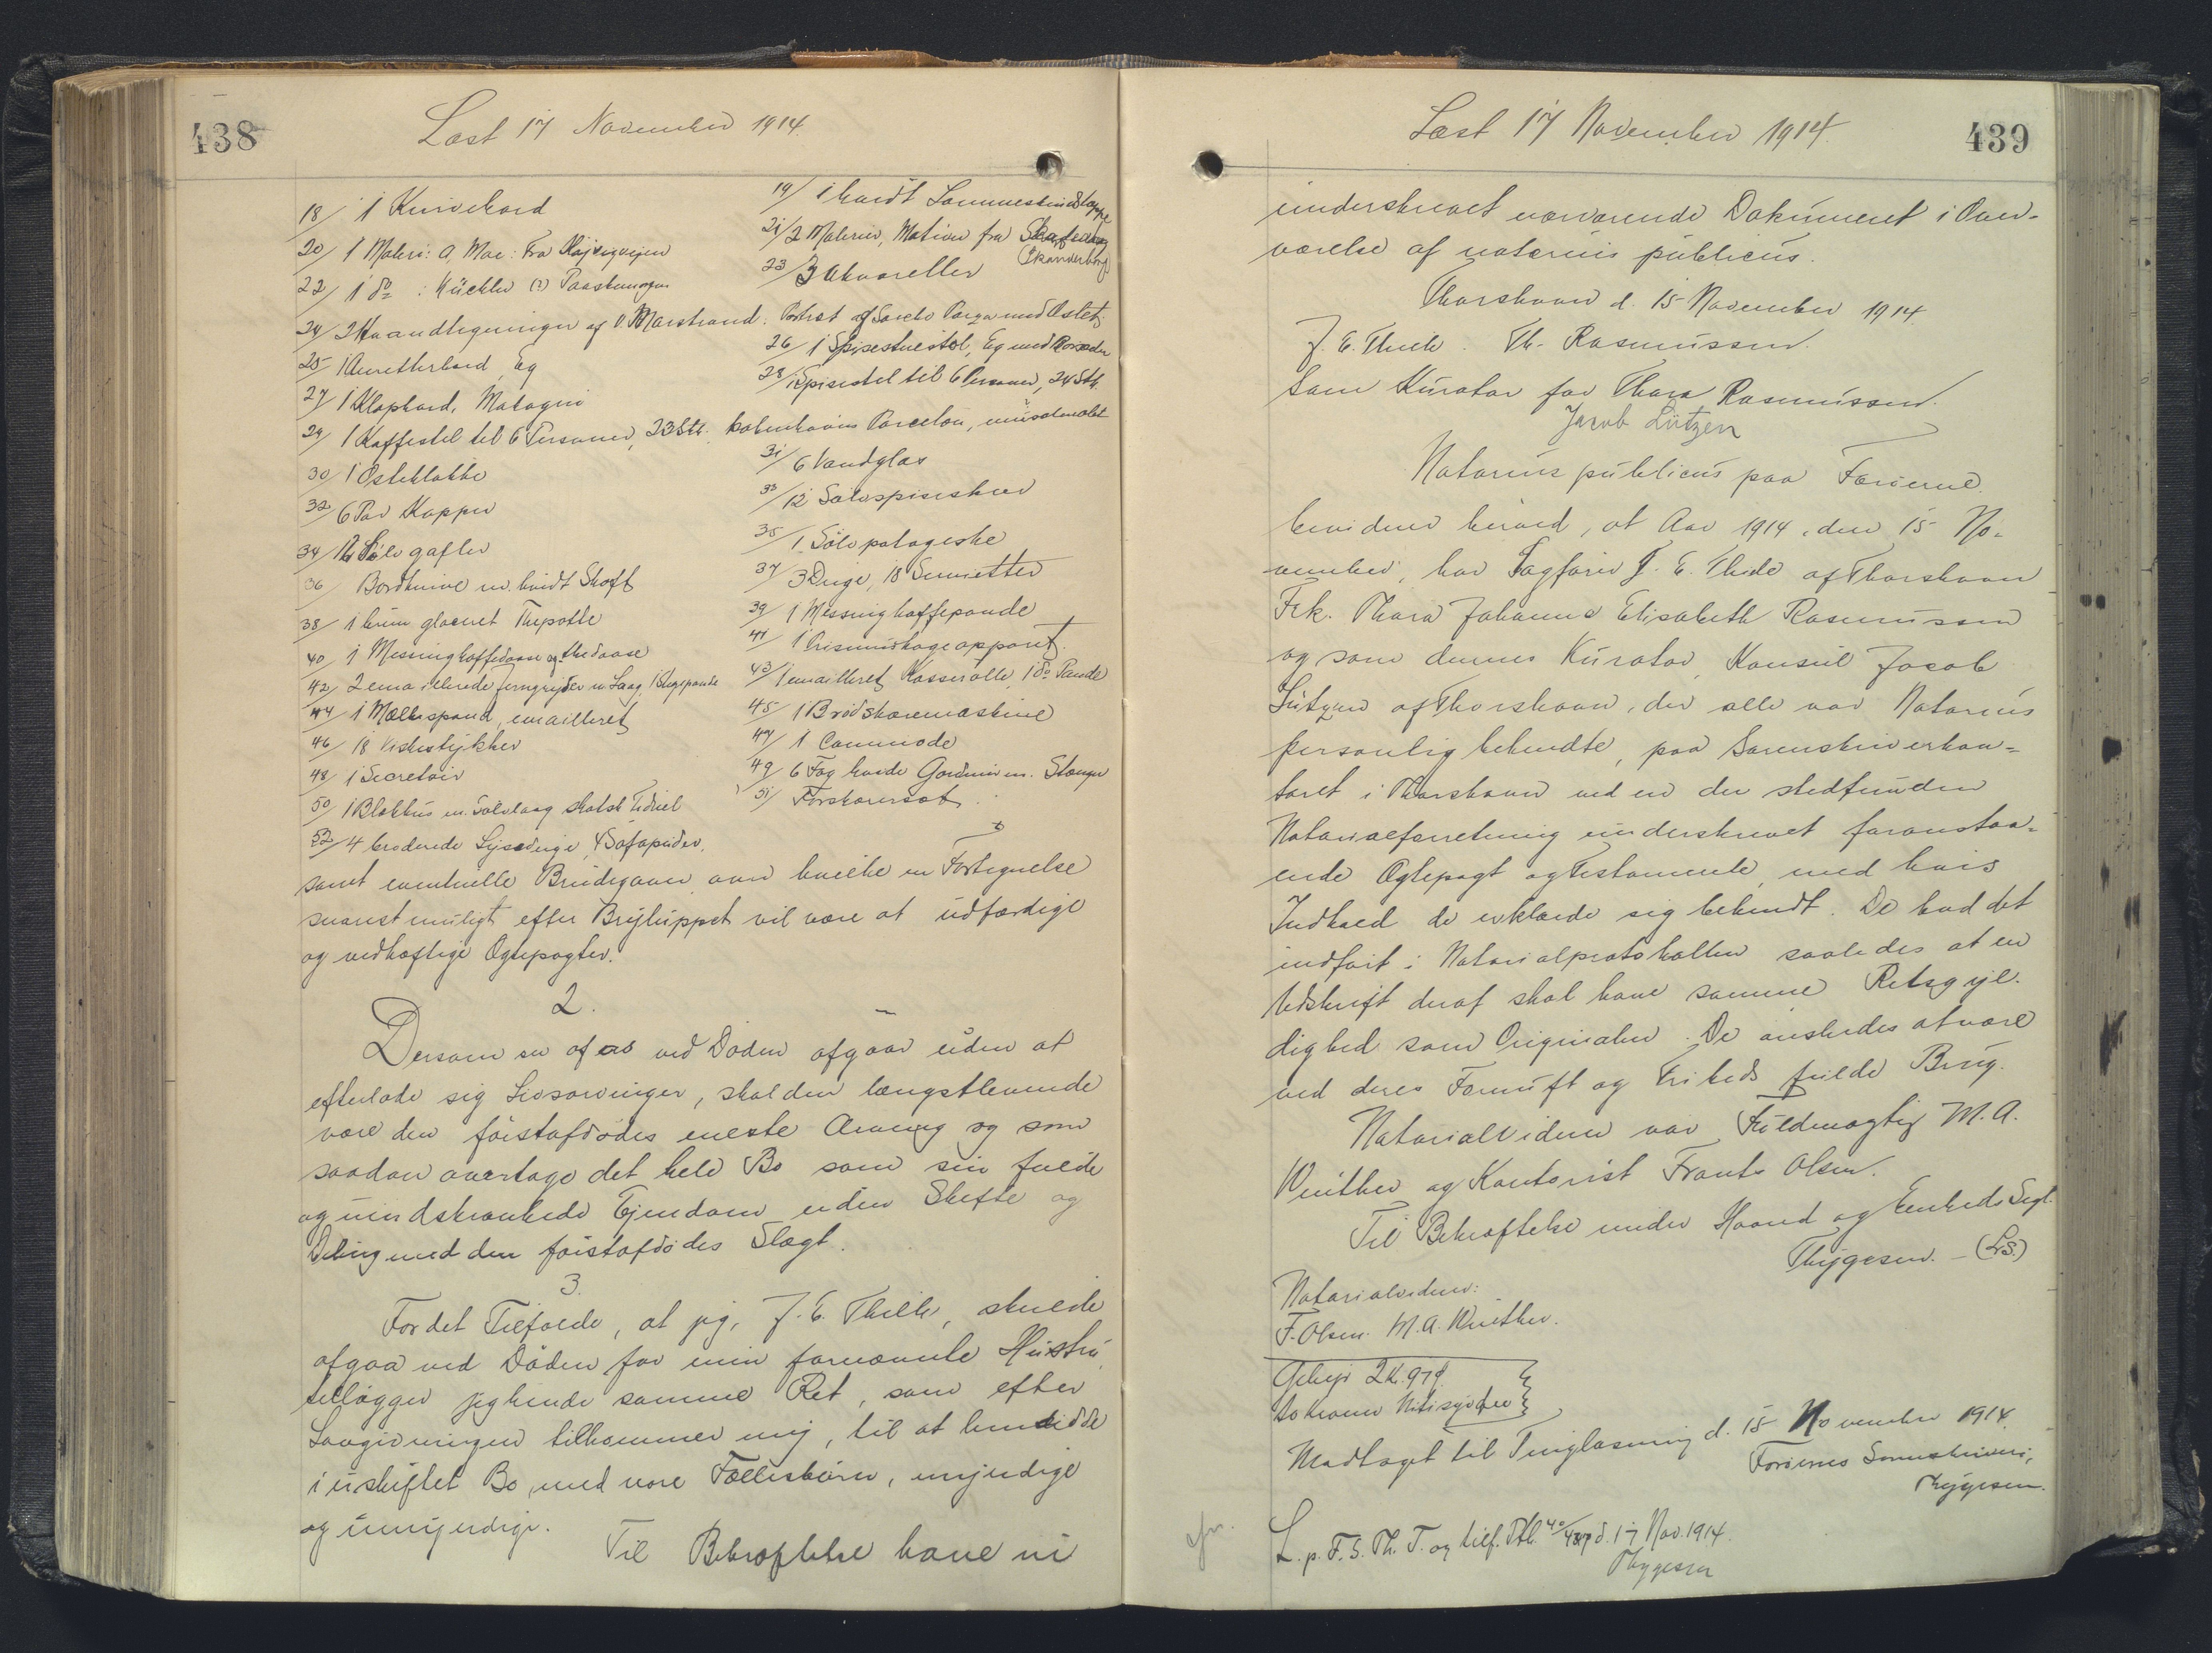 438
Læst 17 November 1914.
18/ 1 Kurvebord
19/ 1 hvidt Lammeskindstæppe
20/ 1 Maleri: A. Moe: Fra Højvigvejen
21/ 2 Malerier, Motiver fra Skanderborg
22/ 1 do : Küchler (?)
23/ 3 Akvareller
24/ 2 Haandtegninger af V. Marstrand: Portræt af Sancho Panza med Æslet.
25/ 1 Anretterbord, Eg
26/ 1 Spisestuestol, Eg med
27/ 1 Klapbord, Mahogni
28/ 1 Spisestel til 6 Personer, 24 Stk.
29/ 1 Kaffestel til 6 Personer, 23 Stk. københavns Porcelæn, musselmalet
30/ 1 Osteklokke
31/ 6 Vandglas
32/ 6 Par Kopper
33/ 12 Sølvspiseskeer
34/ 12 Sølvgafler
35/ 1 Sølvpotageske
36/ Bordknive m. hvidt Skaft
37/ 3 Duge, 18 Servietter
38/ 1 brun glaceret Thepotte
39/ 1 Messingkaffepande
40/ 1 Messingkaffedaase og Thedaase
41/ 1 apparat.
42/ 2 emaillerede Jerngryder m Laag, 1 Stegepande
43/ 1 emailleret Kasserolle, 1 do Pande
44/ 1 Mælkespand, emailleret
45/ 1 Brødskæremaskine
46/ 18 Viskestykker
47/ 1 Commode
48/ 1 Secretair
49/ 6 Fag hvide Gardiner m. Stænger
50/ 1 Blækhus m. Sølvlaag skotsk
51/ Forskærersæt
52/ 4 broderede Lyseduge, 4 Sofapuder,
samt eventuelle Brudegaver over hvilke en Fortegnelse
snarest muligt efter Brylluppet vil være at udfærdige
og vedhæftige Ægtepagten.
2.
Dersom en af os ved Døden afgaar uden at
efterlade sig Livsarvinger, skal den længstlevende
være den førstafdødes eneste Arving og som
saadan overtage det hele Bo som sin fulde
og uindskrænkede Ejendom uden Skifte og
Deling med den førstafdødes Slægt.
3.
For det Tilfælde, at jeg, J. E. Thilk, skulde
afgaa ved Døden før min fornævnte Hustru
tillægger jeg hende samme Ret, som efter
Lovgivningen tilkommer mig, til at hensidde
i uskiftet Bo, med vore Fællesbørn, myndige
og umyndige.
Til Bekræftelse have vi
439
Læst 17 November 1914.
underskrevet nærværende Dokument i Over-
værelse af notarius publicus.
Thorshavn d. 15 November 1914.
J. E. Thilk. Th. Rasmussen.
Som Kurator for Thora Rasmussen.
Jacob Lützen
Notarius publicus paa Færøerne
bevidner herved, at Aar 1914, den 15 No-
vember, har Sagfører J. E. Thilk af Thorshavn
Frk. Thora Johanne Elisabeth Rasmussen
og som dennes Kurator, Konsul Jacob
Lützen af Thorshavn, der alle var Notarius
personlig bekendte, paa Sorenskriverkon-
toret i Thorshavn ved en der stedfunden
Notarialforretning underskrevet foranstaa-
ende Ægtepagt og Testamente, med hvis
Indhold de erklærede sig bekendt. De bad det
indført i Notarialprotokollen saaledes at en
Udskrift deraf skal have samme Retsgyl-
dighed som Originalen. De ansaaedes at være
ved deres Fornuft og Friheds fulde Brug.
Notarialvidner var Fuldmægtig M. A.
Winther og Kontorist Frants Olsen.
Til Bekræftelse under Haand og Embeds Segl.
Thygesen. - (L.S.)
Notarialvidner:
F. Olsen. M. A. Winther.
Gebyr 2 Kr. 97 Ø.
to Kroner Nitisyv Øre
Modtaget til Tinglæsning d. 15 November 1914.
Færøernes Sorenskriveri,
Thygesen.
L. p. F. S. Th. T. og tilf. Ptk. d. 17 Nov. 1914.
Thygesen